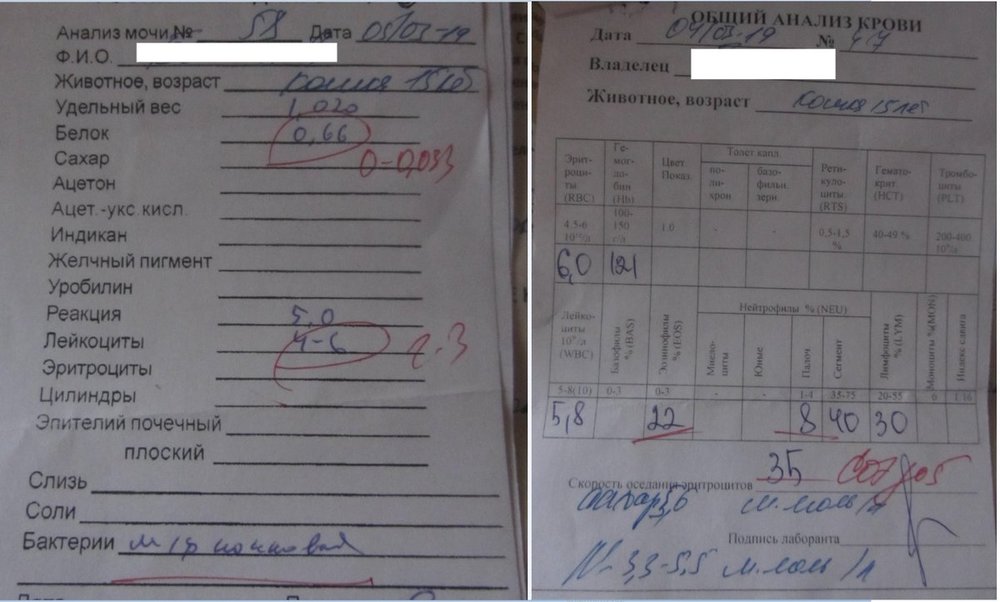 Анализ мочи № 58 Дата 05/03-19
Ф.И.О.
Животное, возраст кошка 15 лет
Удельный вес 1,020
Белок 0,66
Сахар 0-0,033
Ацетон
Ацет.-укс.кисл.
Индикан
Желчный пигмент
Уробилин
Реакция 5,0
Лейкоциты 4-6 2-3
Эритроциты
Цилиндры
Эпителий почечный
плоский
Слизь
Соли
Бактерии м/ф кокковая
ОБЩИЙ АНАЛИЗ КРОВИ
Дата 04/03-19 № 47
Владелец
Животное, возраст кошка 15 лет
Эрит-роци-ты (RBC) Ге-мог-ло-бин (Hb) Цвет Показ. Толст капл. по-ли-хрон базо-фильн. зерн. Рети-куло-циты (RTS) Гемато-крит (HCT) Тромбо-циты (PLT)
4.5-6 100-150 г/л 1.0 - - 0,5-1,5 % 40-49 % 200-400
6,0 121
Лейко-циты (WBC) Базофилы % (BAS) Эозинофилы % (EOS) Нейтрофилы % (NEU) Миело-циты Юные Палоч. Сегмент Лимфоциты % (LYM) Моноциты %(MON) Индекс сдвига
5-8(10) 0-3 0-3 - - 1-4 35-75 20-55 6 1/16
5,8 22 8 40 30
Скорость оседания эритроцитов 35 до5
сахар 3,6 м.моль/л
Подпись лаборанта
N- 3,3-5,5 м.моль/л